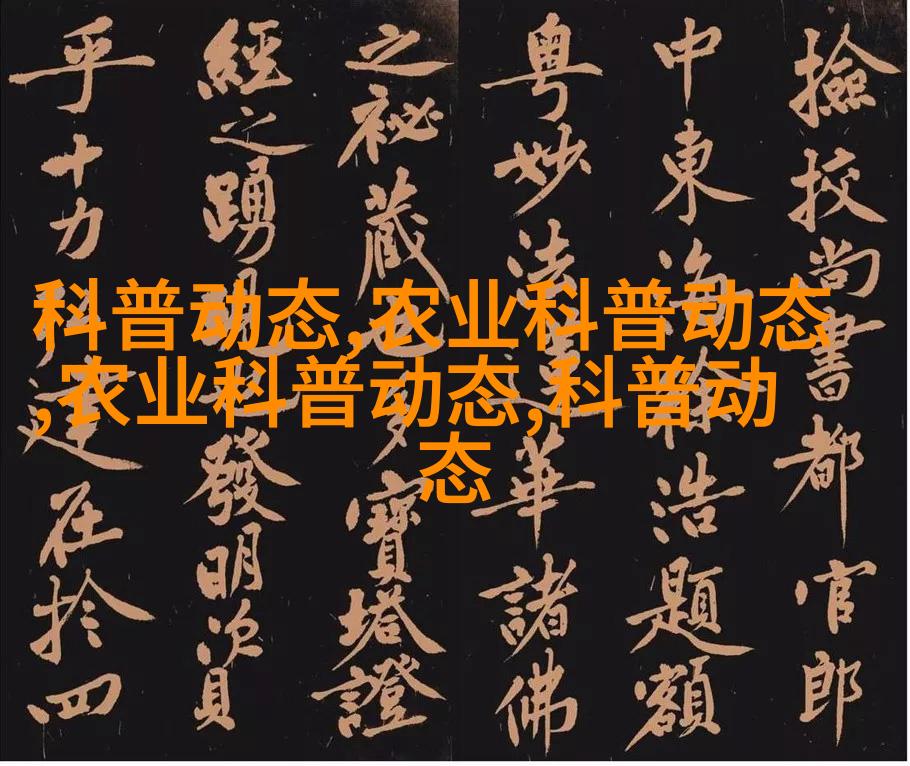 科普动态,农业科普动态
,农业科普动态,科普动
态
撿挍尚書都官郎
中東海徐浩題額
粤妙法蓮華諸佛
之祕藏也多寶塔證
經之踊現也發明資
乎十力弘建在於四